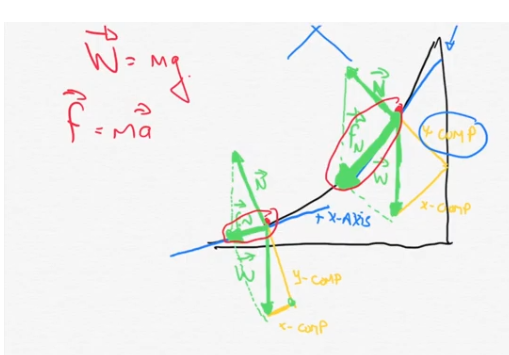 W = mg
f = ma
N
W
y-comp
x-comp
+ x-AXIS
N
W
y-comp
x-comp